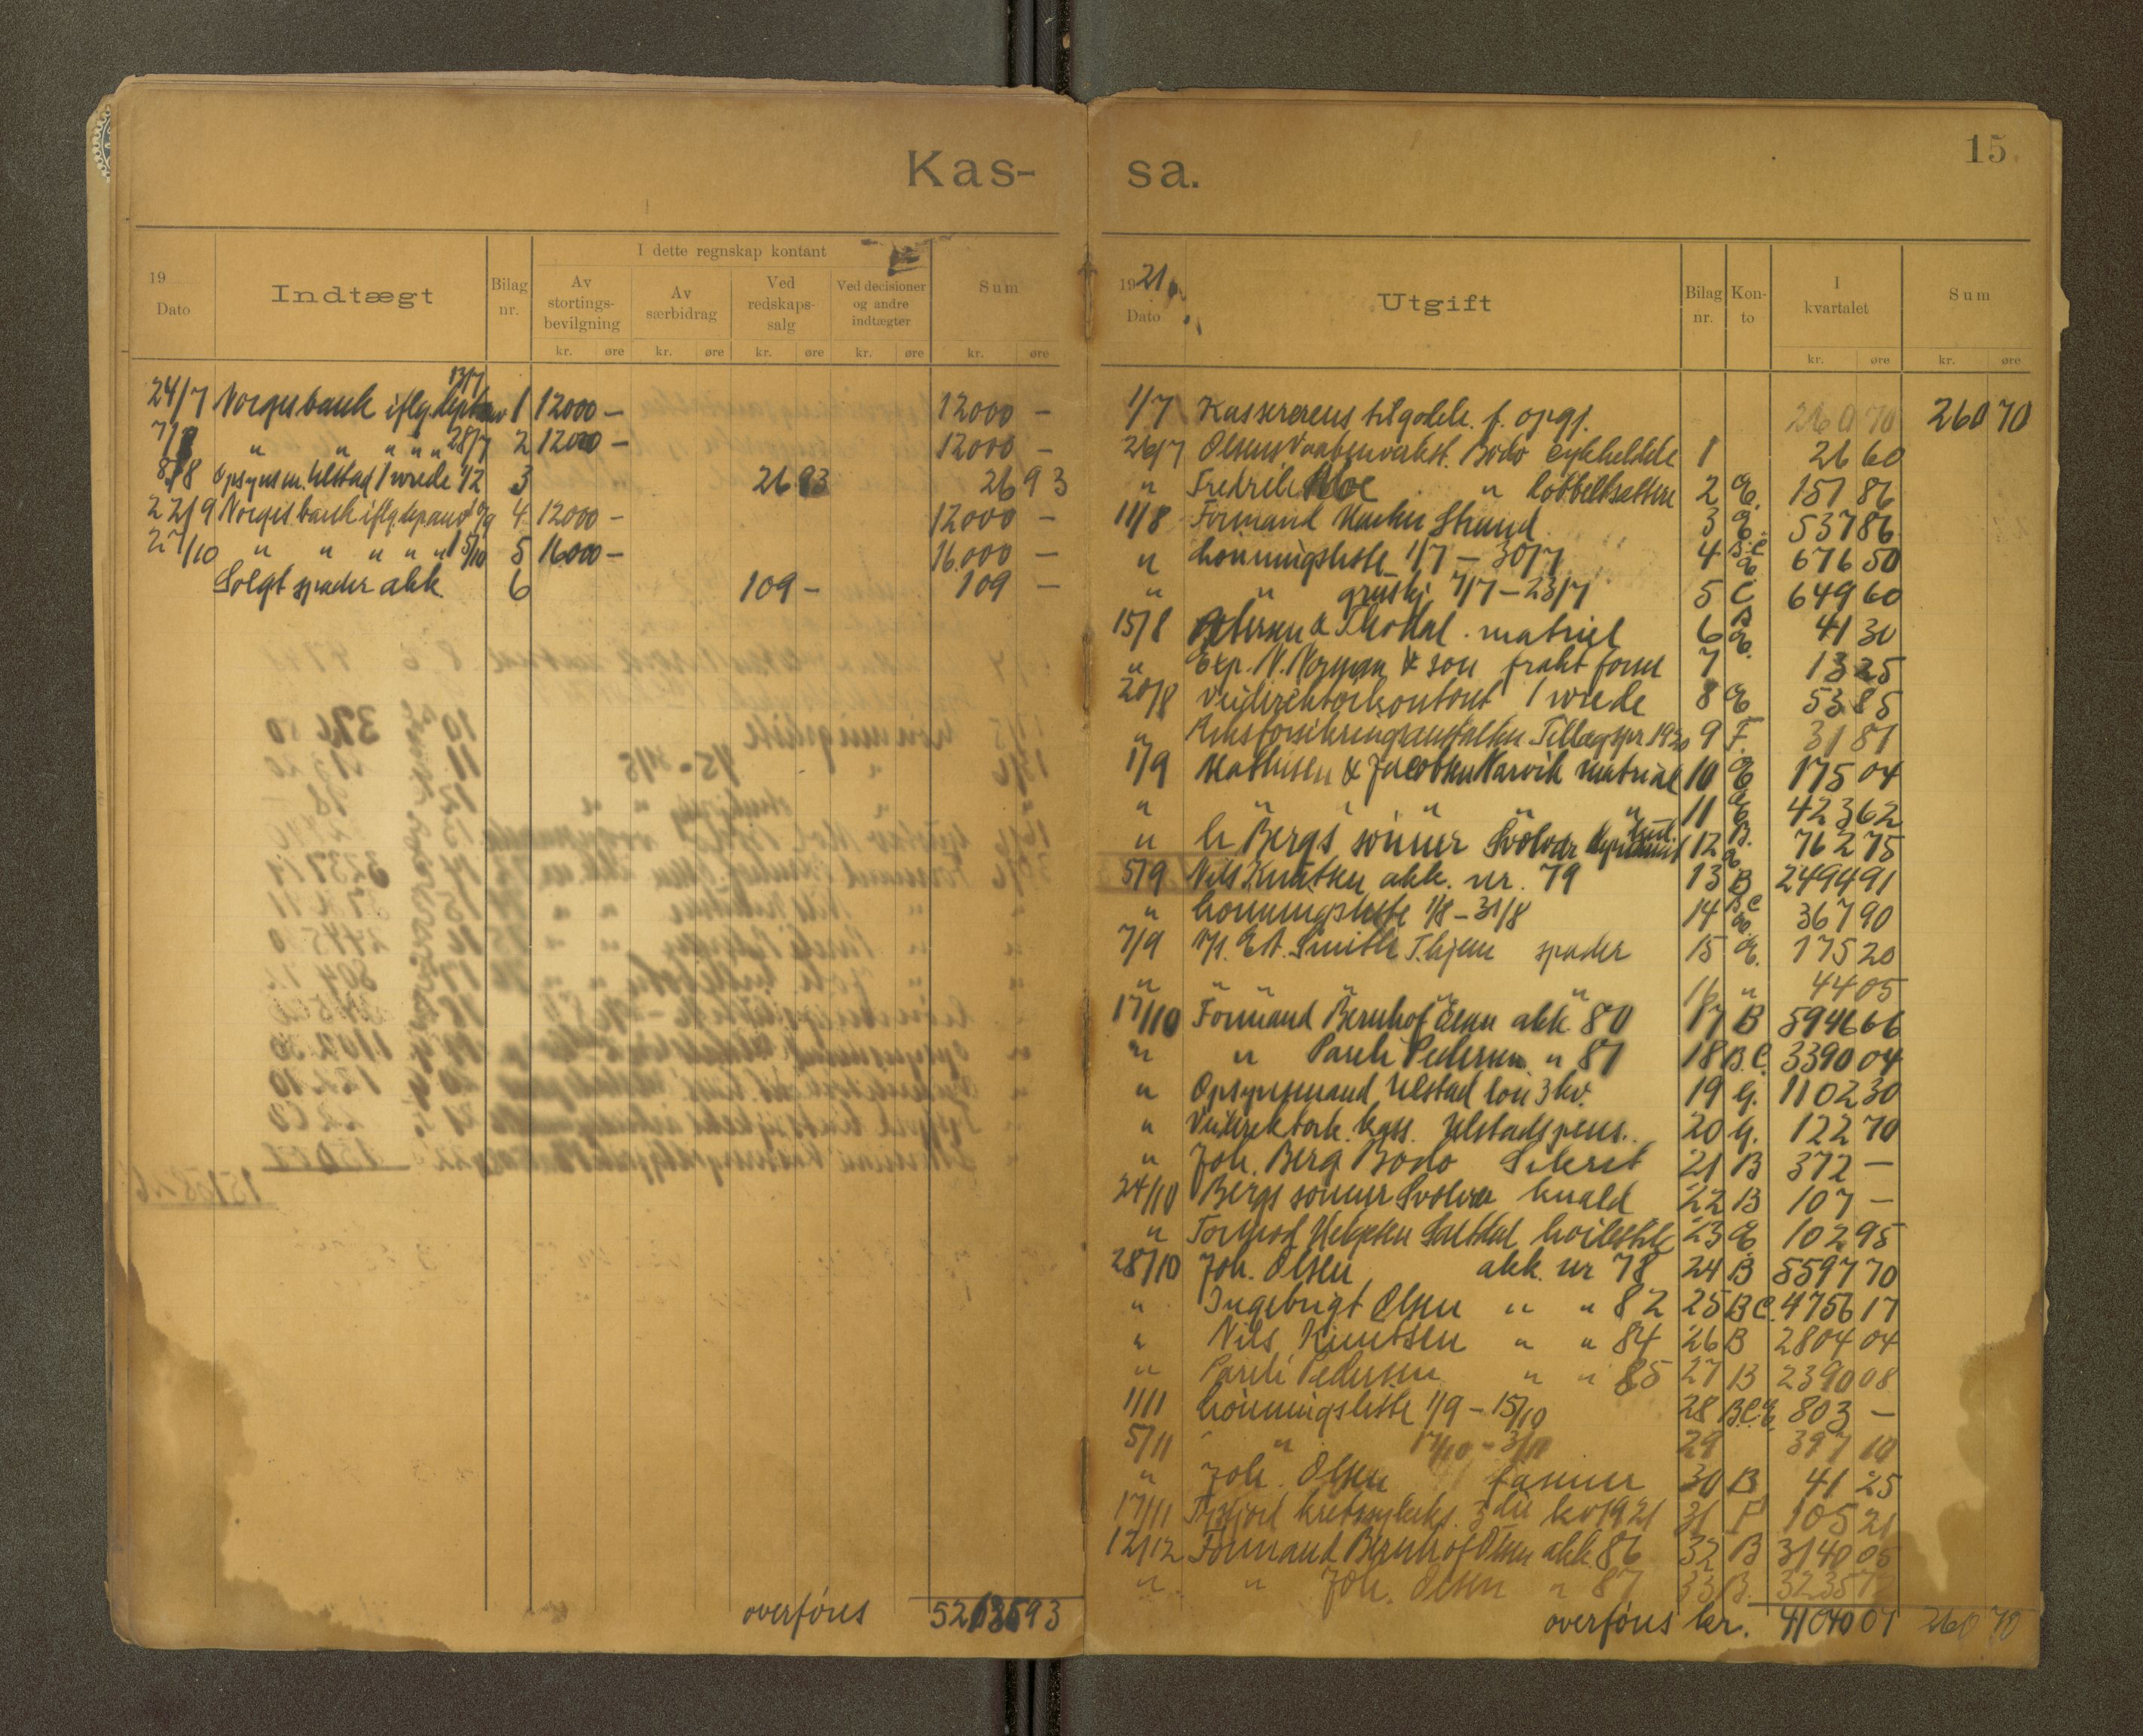 Kas-
I dette regnskap kontant
19 Dato Indtægt Bilag nr. Av stortings-bevilgning Av særbidrag Ved redskaps-salg Ved decisioner og andre indtægter Sum
kr. øre kr. øre kr. øre kr. øre kr. øre
13/7
24/7 Norges bank iflg. 1 12000 - 12000 -
7/8 " " " " " 28/7 2 12000 - 12000 -
8/8 Opsynsm. Ulstad 1 3 26 93 26 93
22/9 Norges bank iflg. 4 12000 - 12000 -
27/10 " " " " " 15/10 5 16000 - 16.000 -
Solgt spader akk. 6 109 - 109 -
overføres 52135 93
sa.
15.
1921 Dato Utgift Bilag nr. Kon-to I kvartalet Sum
kr. øre kr. øre
1/7 Kassererens tilgodeh. f. opgj. 260 70 260 70
26/7 Olsens Vaabenverkst. Bodø 1 26 60
" Fredrik " 2 E. 151 86
11/8 Formand Strand 3 E. 537 86
" Lønningsliste 1/7 - 30/7 4 B.C E 676 50
" " 7/7 - 23/7 5 C 649 60
15/8 & matriel 6 B E. 41 30
" Exp. N. & søn frakt 7 13 25
20/8 Veidirektørkontoret 1 8 E 53 85
" Riksforsikringsanstalten Tillægspr 1920 9 F. 31 81
1/9 & Jacobsen Narvik matriel 10 E 175 04
" " " " " " 11 E 423 62
" Bergs sønner Svolvær 12 B. E 762 75
5/9 Nils Knutsen akk. nr. 79 13 B 2494 91
" Lønningsliste 1/8 - 31/8 14 B.C E. 367 90
7/9 Smith T.hjem spader 15 E. 175 20
" " " " " 16 " 44 05
17/10 Formand Bernhof Olsen akk. 80 17 B 5946 66
" " Pareli Pedersen " 81 18 B.C. 3390 04
" Opsynsmand Ulstad løn 3 kv. 19 G. 1102 30
" Veidirektørk. kass. Ulstads pens. 20 G. 122 70
" Joh. Berg Bodø 21 B 372 -
24/10 Bergs sønner Svolvær knald 22 B 107 -
" Saltdal 23 E 102 95
28/10 Joh. Olsen akk. nr 78 24 B 5597 70
" Ingebrigt Olsen " " 82 25 B C. 4756 17
" Nils Knutsen " " 84 26 B 2804 04
" Pareli Pedersen " " 85 27 B 2390 08
1/11 Lønningsliste 1/9 - 15/10 28 B.C.E 803 -
5/11 " 17/10 - 3/11 29 397 10
" Joh. Olsen 30 B 41 25
17/11 Tysfjord kretssykeks. 3die kv 1921 31 F 105 21
12/12 Formand Bernhof Olsen akk. 86 32 B 3140 05
" " Joh. Olsen " 87 33 B. 3235 72
overføres kr. 41040 07 260 70